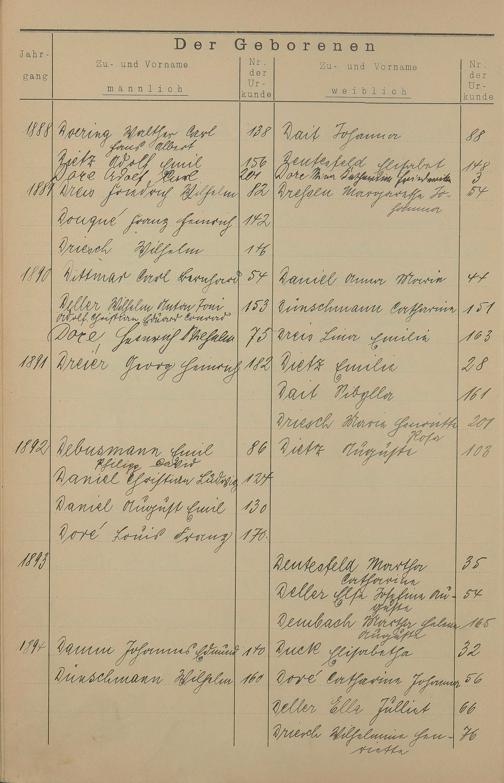 Der Geborenen
Jahrgang Zu- und Vorname männlich Nr. der Urkunde Zu- und Vorname weiblich Nr. der Urkunde
1888 Doering Walther Carl 138 Dait Johanna 88
Hans Albert
Dietz Adolf Emil 156 Deutesfeld Elisabet 148
Doré Adolf Carl 201 Doré Nina Katharina Friederike 3
1889 Dreis Friedrich Wilhelm 82 Dressen Margaretha Jo- 54
hanna
Douqué Franz Heinrich 142
Driesch Wilhelm 146
1890 Dittmar Carl Bernhard 54 Daniel Anna Maria 44
Deller Wilhelm Anton Toni 153 Dünschmann Catharina 151
Adolf Christian Eduard Conrad
Doré, Heinrich Wilhelm 75 Dreis Lina Emilie 163
1891 Dreier Georg Heinrich 182 Dietz Emilie 28
Dait Sibylla 161
Driesch Maria Henriette 201
Rosa
1892 Debusmann Emil 86 Dietz Auguste 108
Philipp David
Daniel Christian Ludwig 124
Daniel August Emil 130
Doré Louis Franz 170
1893 Deutesfeld Martha 35
Catharina
Deller Else Josefine Au- 54
guste
Dembach Martha Helene 165
Auguste
1894 Damm Johannes Edmund 140 Duck Elisabetha 32
Dünschmann Wilhelm 160 Doré Catharina Johanna 56
Deller Ella Julliet 66
Driesch Wilhelmine Hen- 76
riette